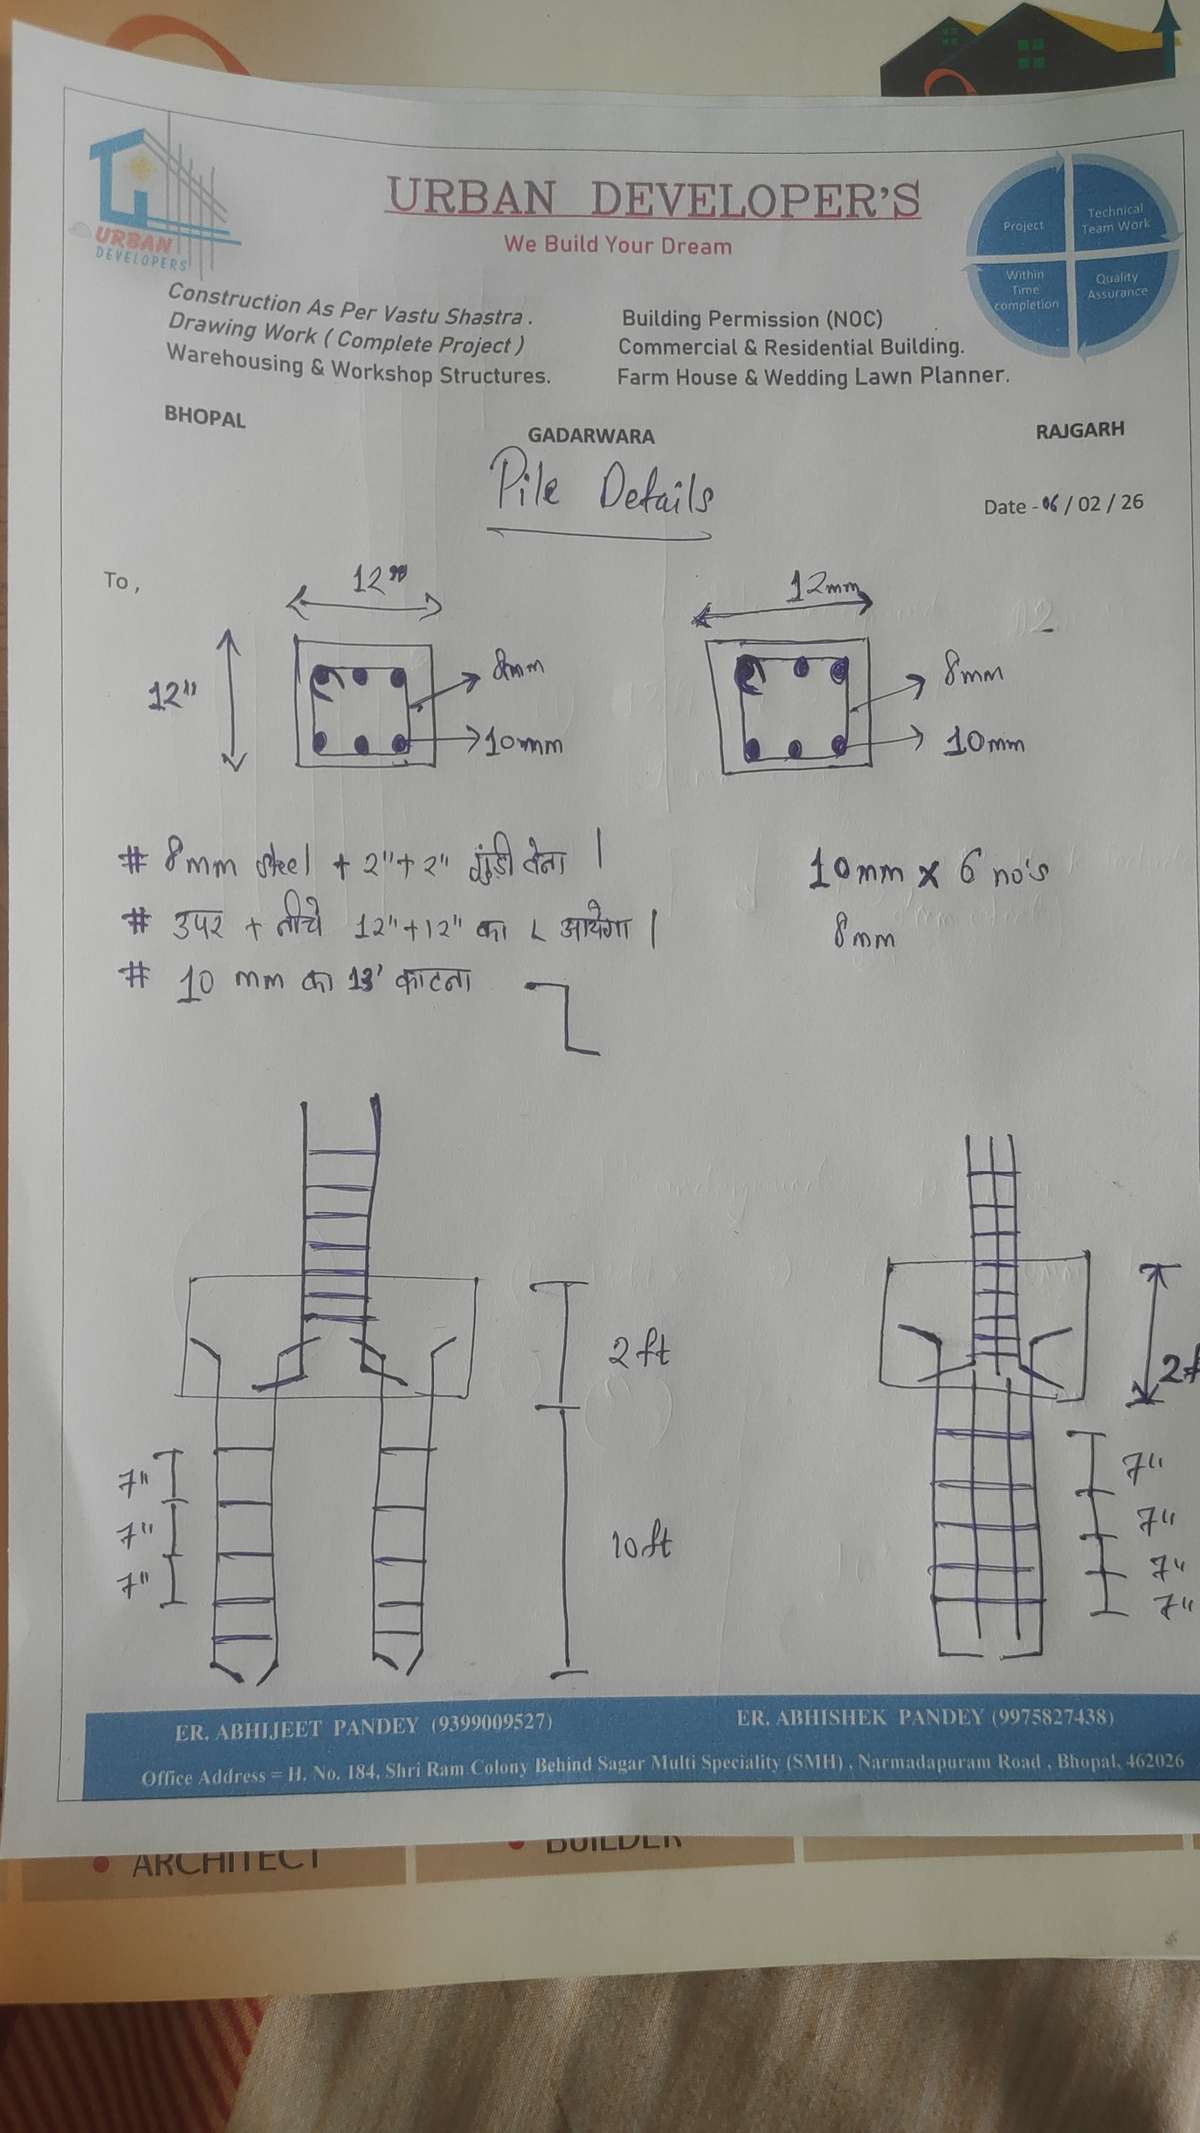 URBAN
DEVELOPERS
URBAN DEVELOPER'S
We Build Your Dream
Project
Technical
Team Work
Within
Time
completion
Quality
Assurance
Construction As Per Vastu Shastra .
Drawing Work ( Complete Project )
Warehousing & Workshop Structures.
Building Permission (NOC)
Commercial & Residential Building.
Farm House & Wedding Lawn Planner.
BHOPAL
GADARWARA
RAJGARH
Pile Details
Date - 06 / 02 / 26
To ,
12"
12"
8mm
10mm
12mm
8mm
10mm
# 8mm steel + 2"+ 2" गुंडी लेना |
# उपर + नीचे 12"+12" का L आयेगा |
# 10 mm का 13' काटना
10mm x 6 no's
8mm
2ft
10ft
7"
7"
7"
2f
7"
7"
7"
7"
ER. ABHIJEET PANDEY (9399009527)
ER. ABHISHEK PANDEY (9975827438)
Office Address = H. No. 184, Shri Ram Colony Behind Sagar Multi Speciality (SMH) , Narmadapuram Road , Bhopal, 462026
• ARCHITECT
• BUILDER